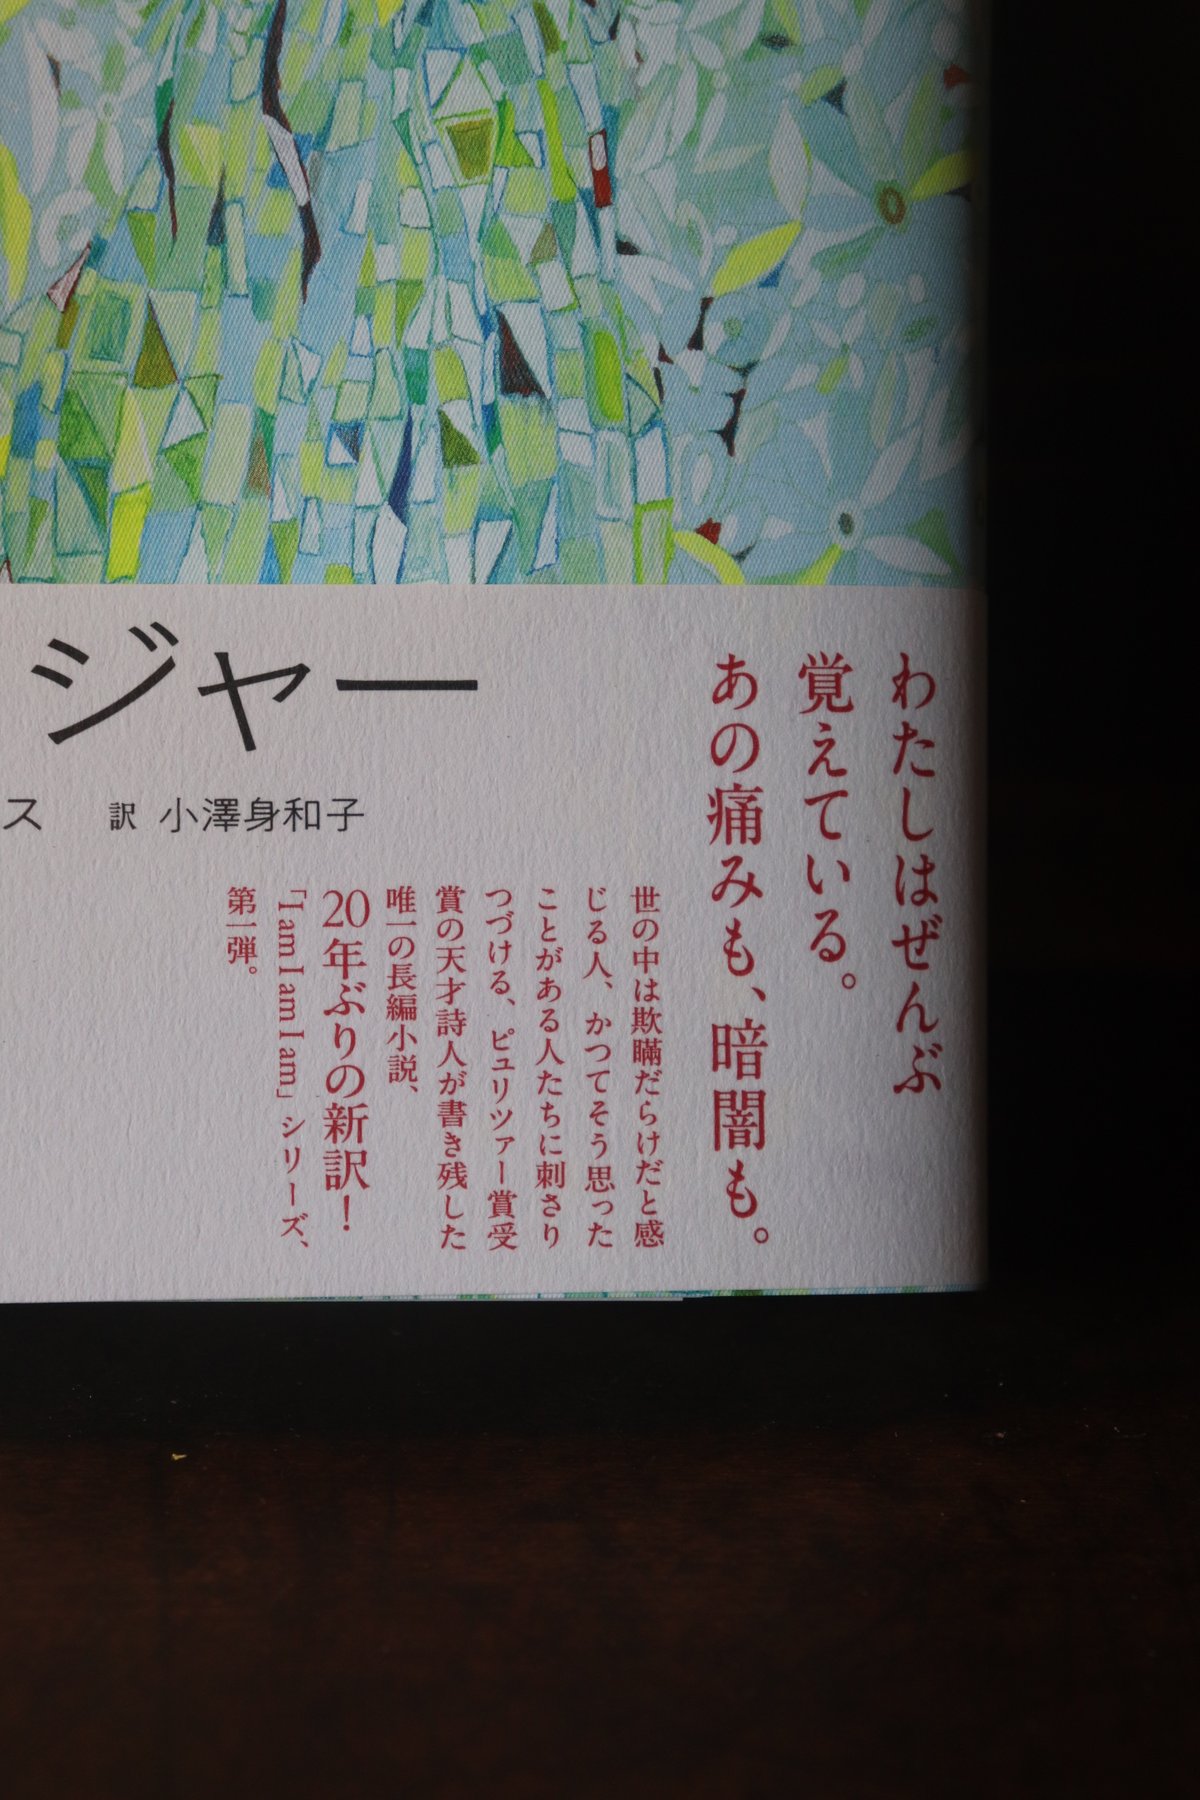 ジャー
ス 訳 小澤身和子
わたしはぜんぶ
覚えている。
あの痛みも、暗闇も。
世の中は欺瞞だらけだと感
じる人、かつてそう思った
ことがある人たちに刺さり
つづける、ピュリツァー賞受
賞の天才詩人が書き残した
唯一の長編小説、
20年ぶりの新訳！
「I am I am I am」シリーズ、
第一弾。